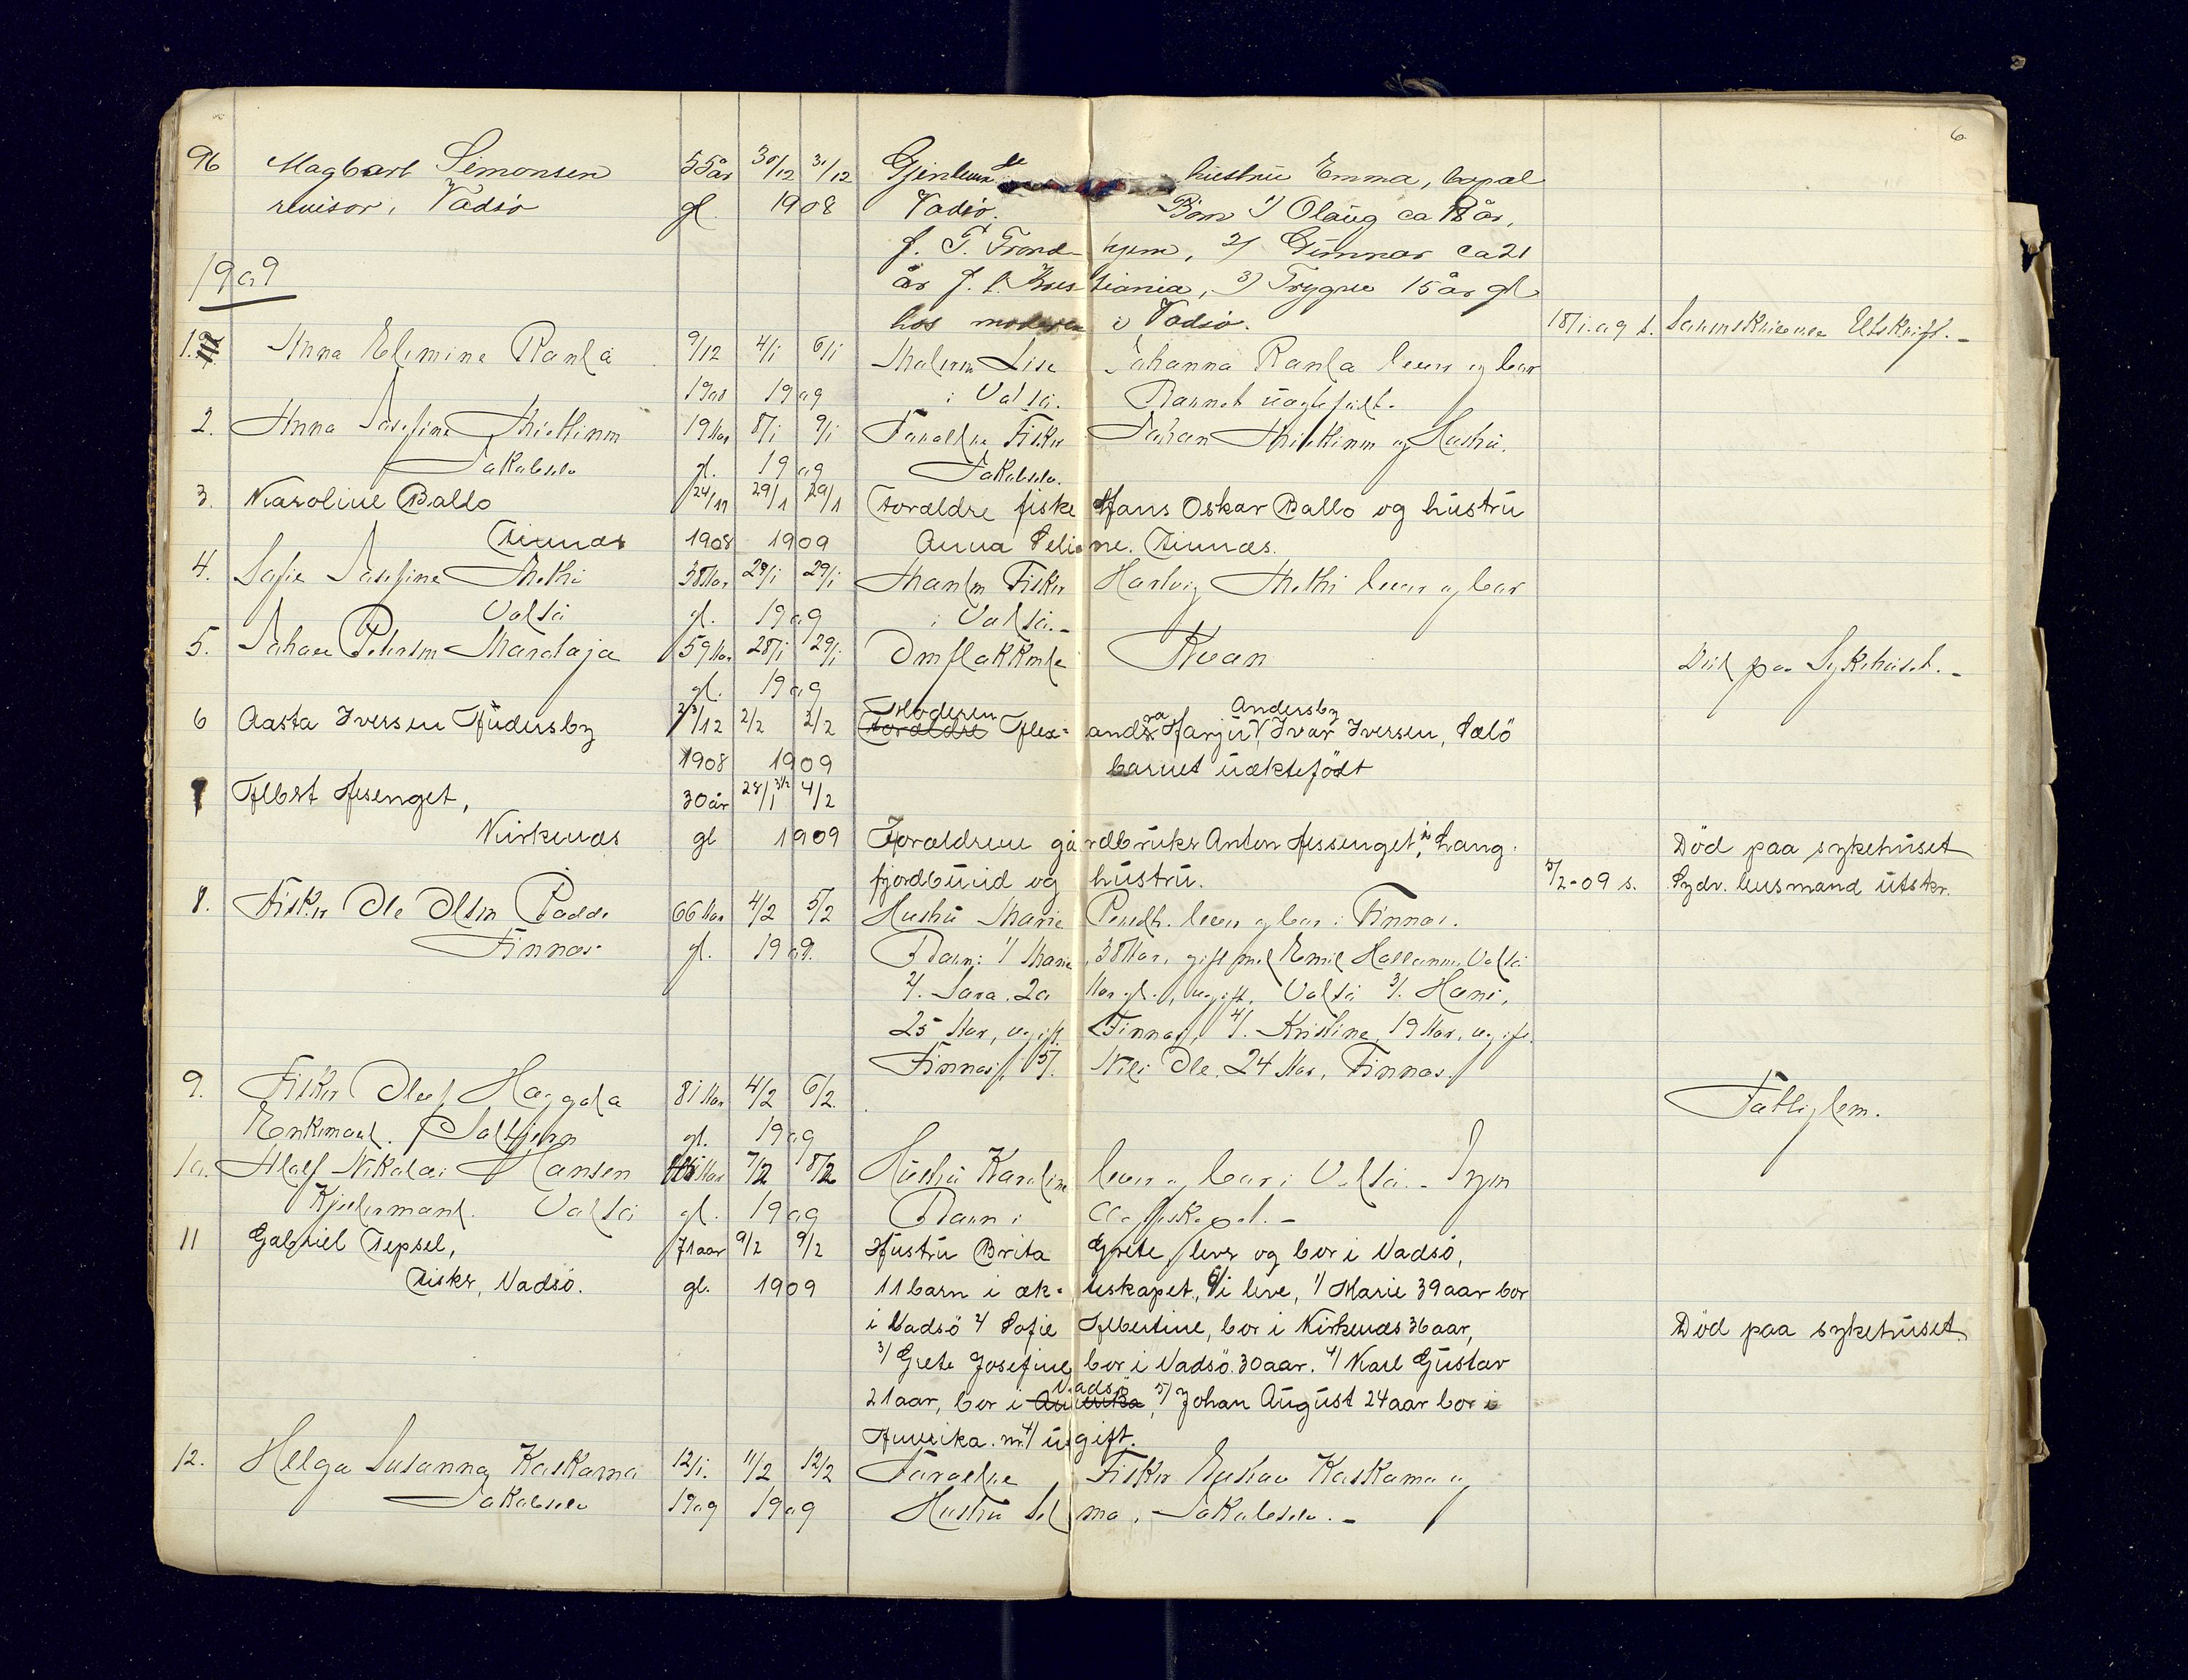 6.
96 Magbart Simonsen 55 år 30/12 31/12 Gjenlevende hustru Emma, bopæl
revisor, Vadsö gl. 1908 Vadsö. Börn 1) Olaug ca 18 år,
f. T. Trondhjem, 2) Gunnar ca 21
1909
år f. t. Kristiania, 3) Trygve 15 år gl
hos moderen i Vadsö. 18/1.09 s. Utskrift.-
1. Anna Elemine Ranta 9/12 4/1 6/1 Moderen Lise Johanna Ranta lever og bor
1908 1909 i Vadsö. Barnet uægtefödt.
2. Anna Josefine 19 Aar 8/1 9/1 Forældre Fisker Johan og Hustru.
Jakobselv gl. 1909 Jakobselv.
3. Karoline Ballo 24/11 29/1 29/1 Forældre fiske Hans Oskar Ballo og hustru
Finnæs 1908 1909 Anna Peline. Finnæs.
4. Sofie Josefine Methi 38 Aar 29/1 29/1 Manden Fisker Hartvig Methi lever og bor
Vadsö gl. 1909 i Vadsö.-
5. Johan Petersen Marataja 59 Aar 28/1 29/1 Omflakkende Kvæn Död paa Sykehuset.-
gl. 1909
6 Aasta Iversen Andersby 23/12 2/2 2/2 Moderen Forældre Alexandra Harju, Andersby Ivar Iversen, Salö
1908 1909 barnet uæktefödt
7 Albert Assenget, 30 år 28/1 3/2 4/2
Kirkenæs gl 1909 Forældrene gårdbruker Anton Assenget, i Lang- Död paa sykehuset
fjordbund og hustru. 5/2-09 s. Sydv. lensmand utskr.
8. Fisker Ole Olsen Badde 66 Aar 4/2 5/2 Hustru Marie lever og bor i Finnæs.
Finnæs gl. 1909. Barn: 1/ Marie, 38 Aar, gift med Emil Vadsö
2/. Sara. 20 Aar gl., ugift. Vadsö 3/. Hans,
25 Aar, ugift. Finnæs, 4/. Kristine, 19 Aar, ugift.
Finnæs, 5/. Nils Ole. 24 Aar, Finnæs.
9. Fisker Oluf Haggala 81 Aar 4/2 6/2. Fattiglem.
Enkemand. Saltjern gl. 1909
10. Adolf Nikolai Hansen Aar 7/2 8/2 Hustru Karoline lever og bor i Vadsö.- Ingen
Kjelermand. Vadsö gl. 1909 Barn i Ægteskapet.-
11 Gabriel Tepsel, 71 aar 9/2 9/2 Hustru Brita Grete, lever og bor i Vadsö,
Fisker, Vadsö. gl. 1909 11 barn i ækteskapet, i live, 1/ Marie 39 aar bor
i Vadsö 2/ Sofie Albertine, bor i Kirkenæs 36 aar, Död paa sykehuset
3/ Grete Josefine bor i Vadsö 30 aar. 4/ Karl Gustav
21 aar, bor i Amerika Vadsö, 5/ Johan August 24 aar bor i
Amerika. nr. 4/ ugift.
12. Helga Susanna Kaskama 12/1. 11/2 12/2 Forældre Fisker Gustav Kaskama og
Jakobselv 1909 1909 Hustru Selma, Jakobselv.-